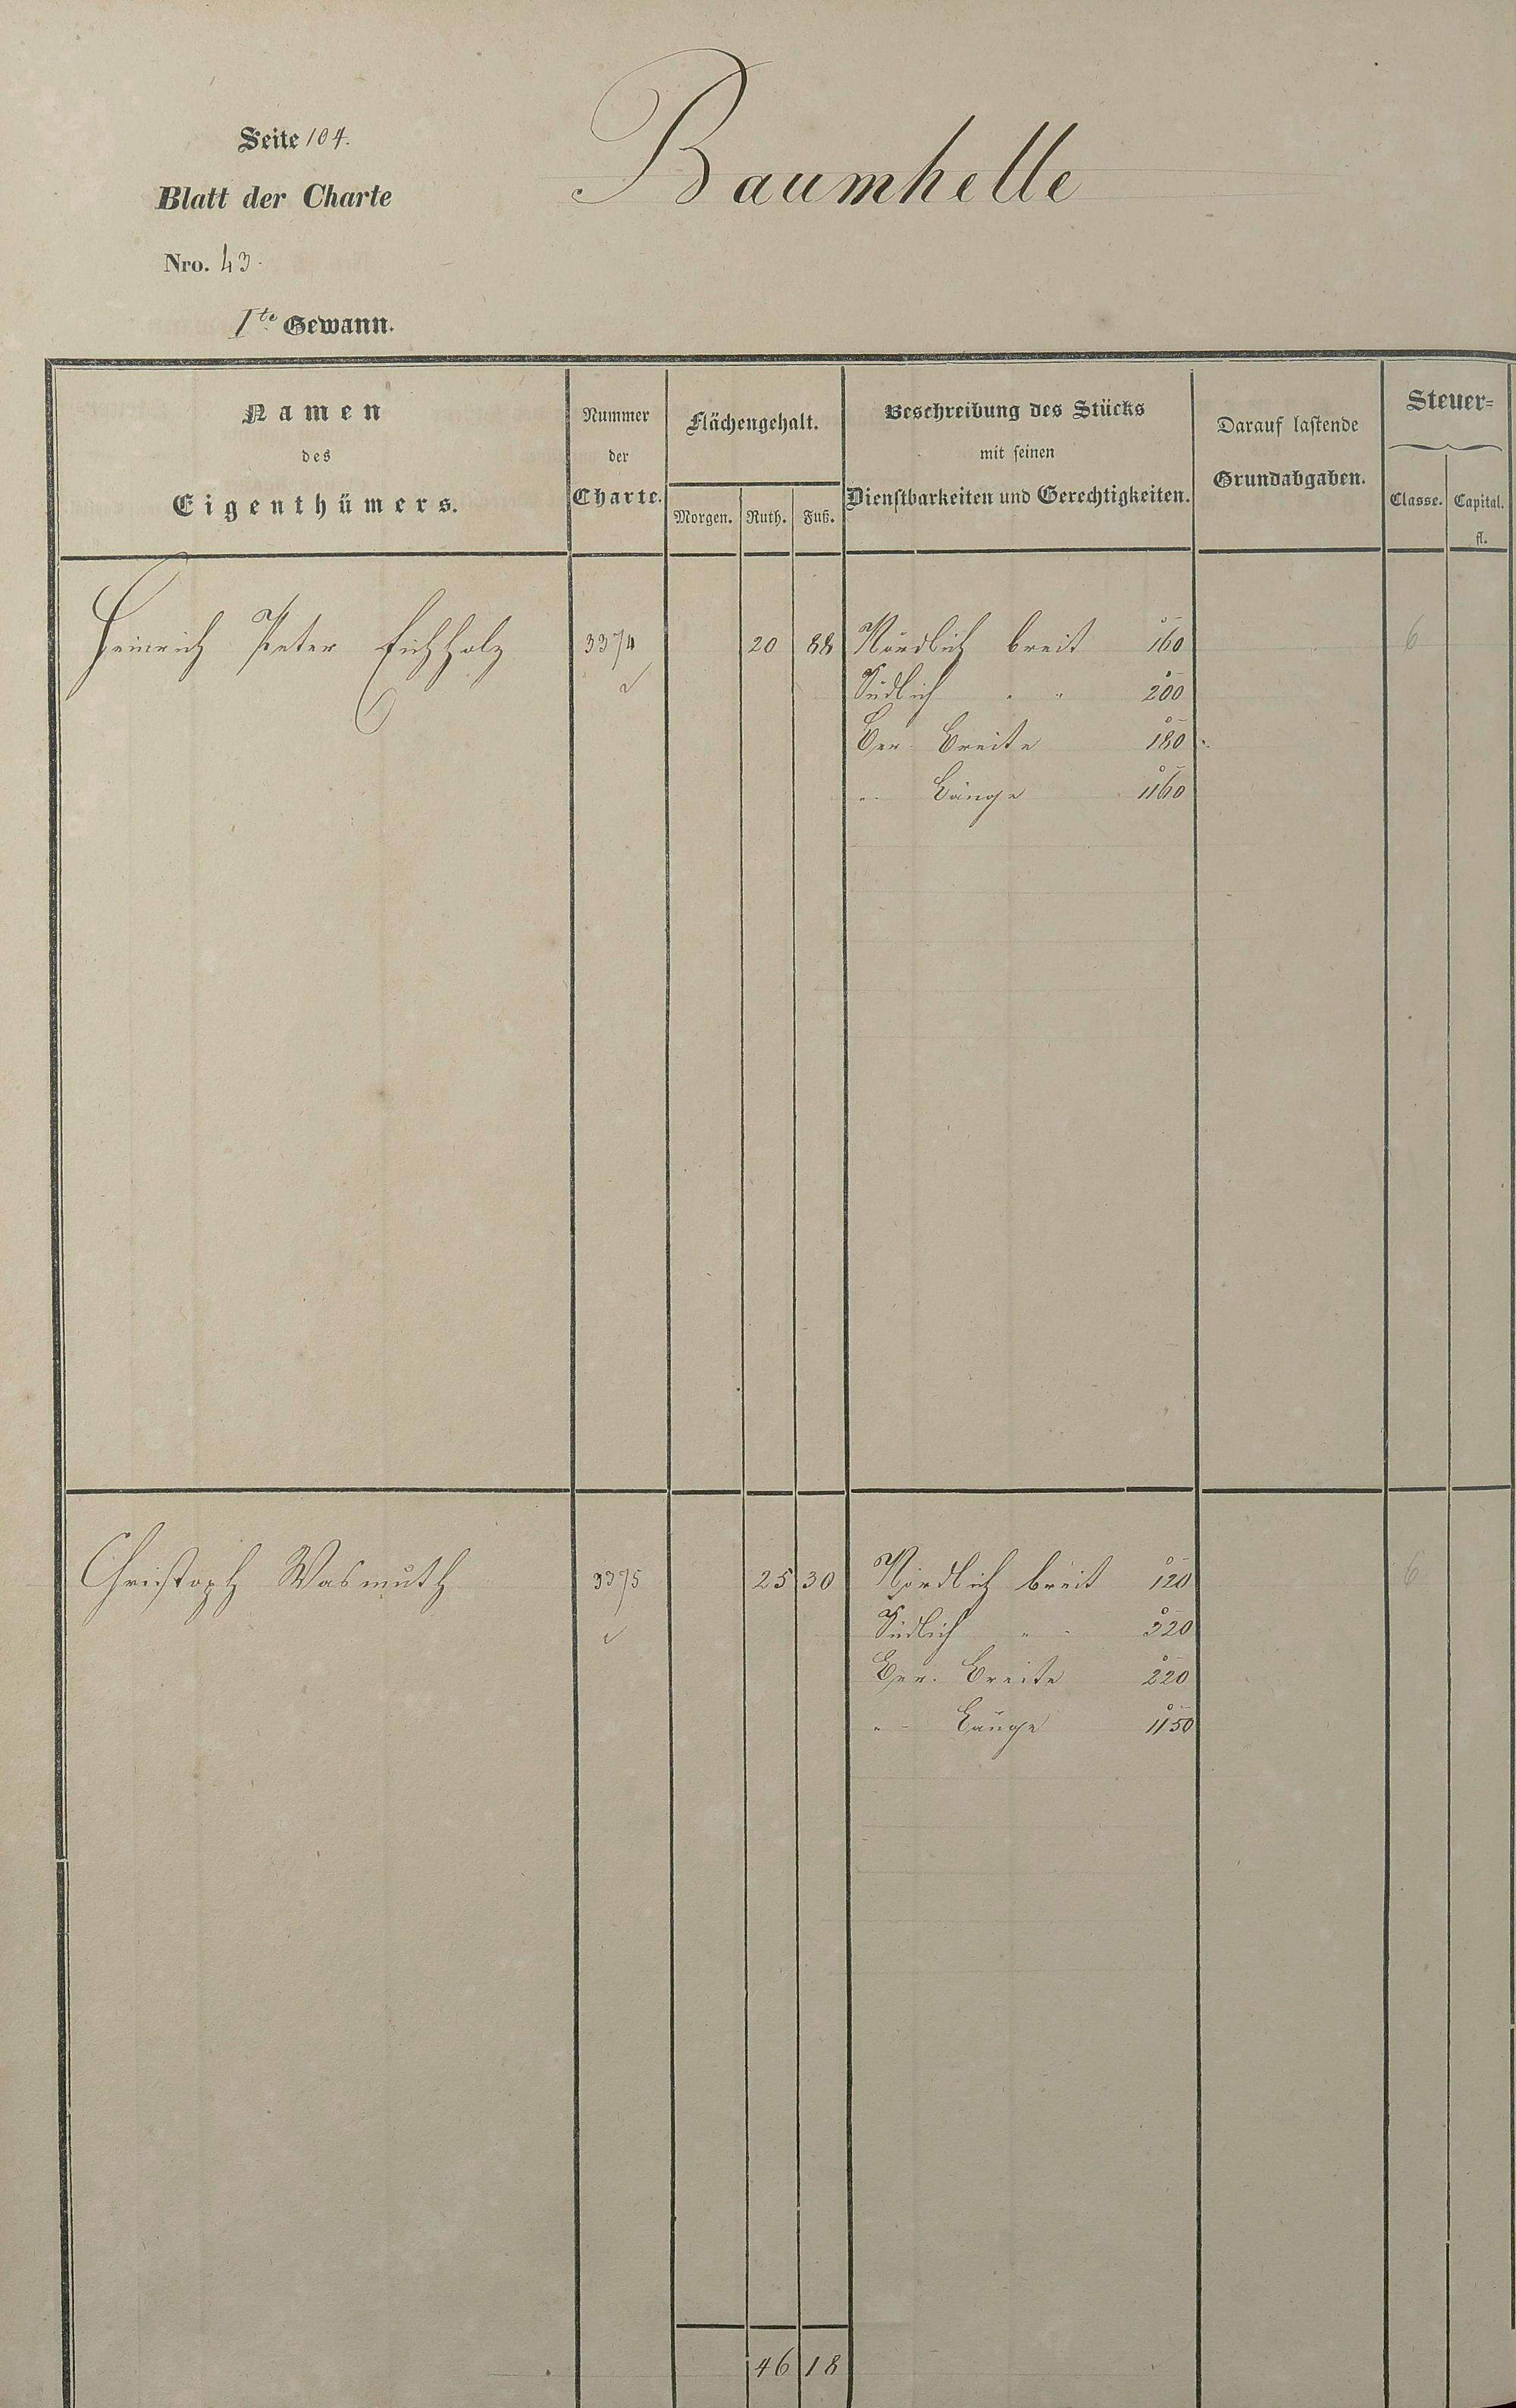 Seite 104.
Baumhelle
Blatt der Charte
Nro. 43.
Ite Gewann.
Namen
des
Eigenthümers.
Nummer
der
Charte.
Flächengehalt.
Morgen. Ruth. Fuß.
Beschreibung des Stücks
mit seinen
Dienstbarkeiten und Gerechtigkeiten.
Darauf lastende
Grundabgaben.
Steuer=
Classe. Capital.
fl.
Heinrich Peter Eichholz 3374 20 88 Nördlich breit 160 6
Südlich " " 200
Ber. Breite 180
" Länge 1160
Christoph Wasmuth 3375 25 30 Nördlich breit 120 6
Südlich " " 320
Ber. Breite 220
" Länge 1150
46 18